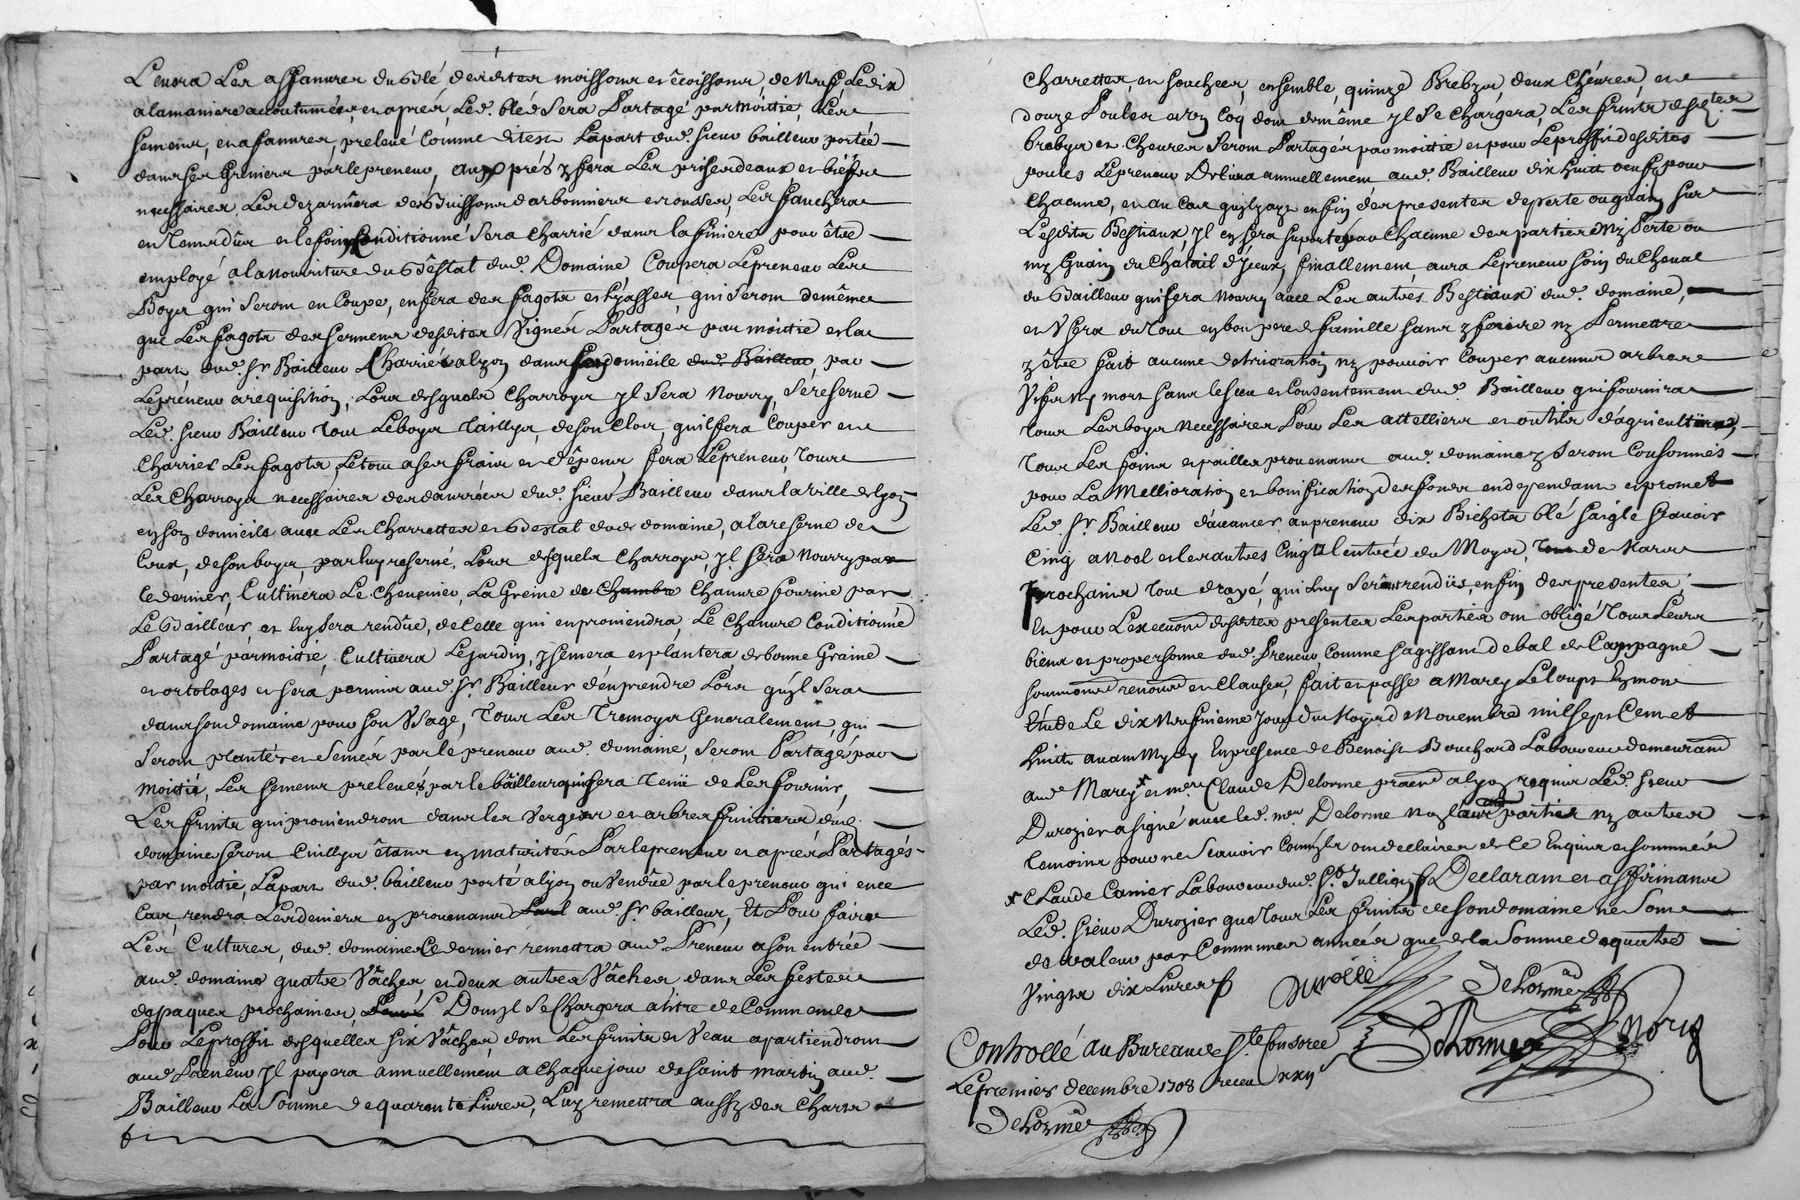 Levera Les affanures du Blé desdites moissons et écoissons, de Neuf Le dix
a la maniere accoutumée, et aprés, Led. bled sera Partagé par moittié, Les
semens, et afanures, prelevé comme dit est La part dud. sieur bailleur portée
dans ses Greniers par le preneur, aux prés y fera Les prises deaux, et biefs
necessaires, Les dezarmera des Buissons et ronses, Les fauchera
en Tems dûs et le foin Conditionné sera charrié dans la finiere pour être
employé a la nourriture du Bêstat dud. Domaine Coupera Le preneur Les
Boys qui seront en Coupe, en fera des fagots qui seront de même
que Les fagots des sermens desdites Vignes Partagés par moittié et la
part dud. Sr. Bailleur Charriée a lyon dans son domicile dud. Bailleur par
Le preneur a requisition, Lors desquels Charroys yl sera Nourry, se reserve
Led. sieur Bailleur Tout Le boys Taillys, de son Clos, quil fera Couper et
Charrier Les fagots Le tout a ses frais et dêpens fera Le preneur, Tous
Les Charroys necessaires des danrées dud. sieur Bailleur dans la ville de lyon
en son domicile avec Les Charrettes et Bestat dud. domaine, a la reserve de
Ceux, de son boys, par luy reservé, Lors desquels Charroys, yl sera Nourry par
Ce dernier, Cultivera Le Chenevier, La Greine de Chambre Chanvre fournie par
Le Bailleur, et luy sera rendüe, de Celle qui en proviendra, Le Chanvre Conditionné
Partagé par moittié, Cultivera Le jardin, y semera et plantera de bonne Graine
et ortolages et sera permis aud. Sr. Bailleur d'en prendre Lors quyl sera
dans son domaine pour son Vsage, Tous Les Tremoys Generalement, qui
seront plantés et semés par le preneur aud. domaine, seront Partagés par
moitié, Les semens prelevés, par le bailleur qui sera Tenü de Les fournir,
Les fruits qui proviendront dans les Vergers et arbres fruitiers dud.
domaine seront Cuillys êtans en maturités Par le preneur et aprés Partagés
par moittié, La part dud. bailleur porté a lyon ou Vendüe par le preneur qui en ce
Cas rendra Les deniers en provenans aud. Sr. bailleur, Et Pour faire
Les Cultures, dud. domaine Ce dernier remettra aud. Preneur a son entrée
aud. domaine quatre Vâches, et deux autres Vâches, dans Les festes
de paques prochaines, Dont yl se Chargera a titre de Commande
Pour Le proffit desquelles six Vâches, dont Les fruits de Veau apartiendront
aud. Preneur yl payera annuellement a Chaque jour de saint martin aud.
Bailleur La somme de quarante Livres, Luy remettra aussy des Chars
Charrettes, ensemble, quinze Brebys, deux Chévres, et
douze Poules et un Coq dont de même yl se Chargera, Les fruits desdtes.
brebys et Chevres seront Partagés par moittié et pour Le proffit desdites
poules Le preneur Delivra annuellement aud. Bailleur dix huit oeufs pour
Chacune, et au Cas quyl y aye en fin des presentes de perte ou guain sur
Lesdits Bestiaux, yl en sera suporté par Chacune des parties My Perte ou
my Guain du Chatail d'Jceux, finallement aura Le preneur soin du Cheval
du Bailleur qui sera Nourry avec Les autres Bestiaux dud. domaine,
et Vsera du Tout en bon pere de famille sans y faire ny Permettre
y être fait aucune deterioration ny pouvoir Couper aucuns arbres
Vifs ny mort sans le sceu et Consentement dud. Bailleur qui fournira
Tous Les boys necessaires Pour Les attelliers et outils d'agriculture,
Tous Les foins et pailles provenans aud. domaine y seront Consommés
pour La Mellioration et bonification des fonds en dependans et promet
Led. Sr. Bailleur d'avancer au preneur dix Bichets blé saigle sçavoir
Cinq a Noel et les autres Cinq a l'entrée du Moys, de Mars
prochains Tout de rayé, qui luy seront rendüs, en fin des presentes,
Et pour L'execution desdites presentes Les parties ont obligé Tous Leurs
biens et propre personne dud. Preneur Comme s'agissant de bal de Campagne
soumions renons et Clauses, fait et passé a Marcy Le loup en mon
Etude Le dix Neufvieme jour du Moys de Novembre mil sept Cent et
huit avant Mydy En presence de Benoist Bouchard Laboureur demeurant
aud. Marcy x et mere Claude Delorme pratn a lyon requis Led. sieur
Durozier a signé avec led. me Delorme Non Lautres parties ny autres
temoins pour ne sçavoir Comme ils ont declairer de Ce Enquis et sommés
x Claude Canier Laboureur dud. St. Jullien Declarant et affirmant
Led. sieur Durozier que Tous Les fruits de son domaine ne sont
de valeur par Communes années que de la somme de quatre
Vingts dix Livres
Durozié
Delorme
Delorme
Controllé au Bureau de Ste. Consorce
Le premier decembre 1708 receu xxijs
Delorme